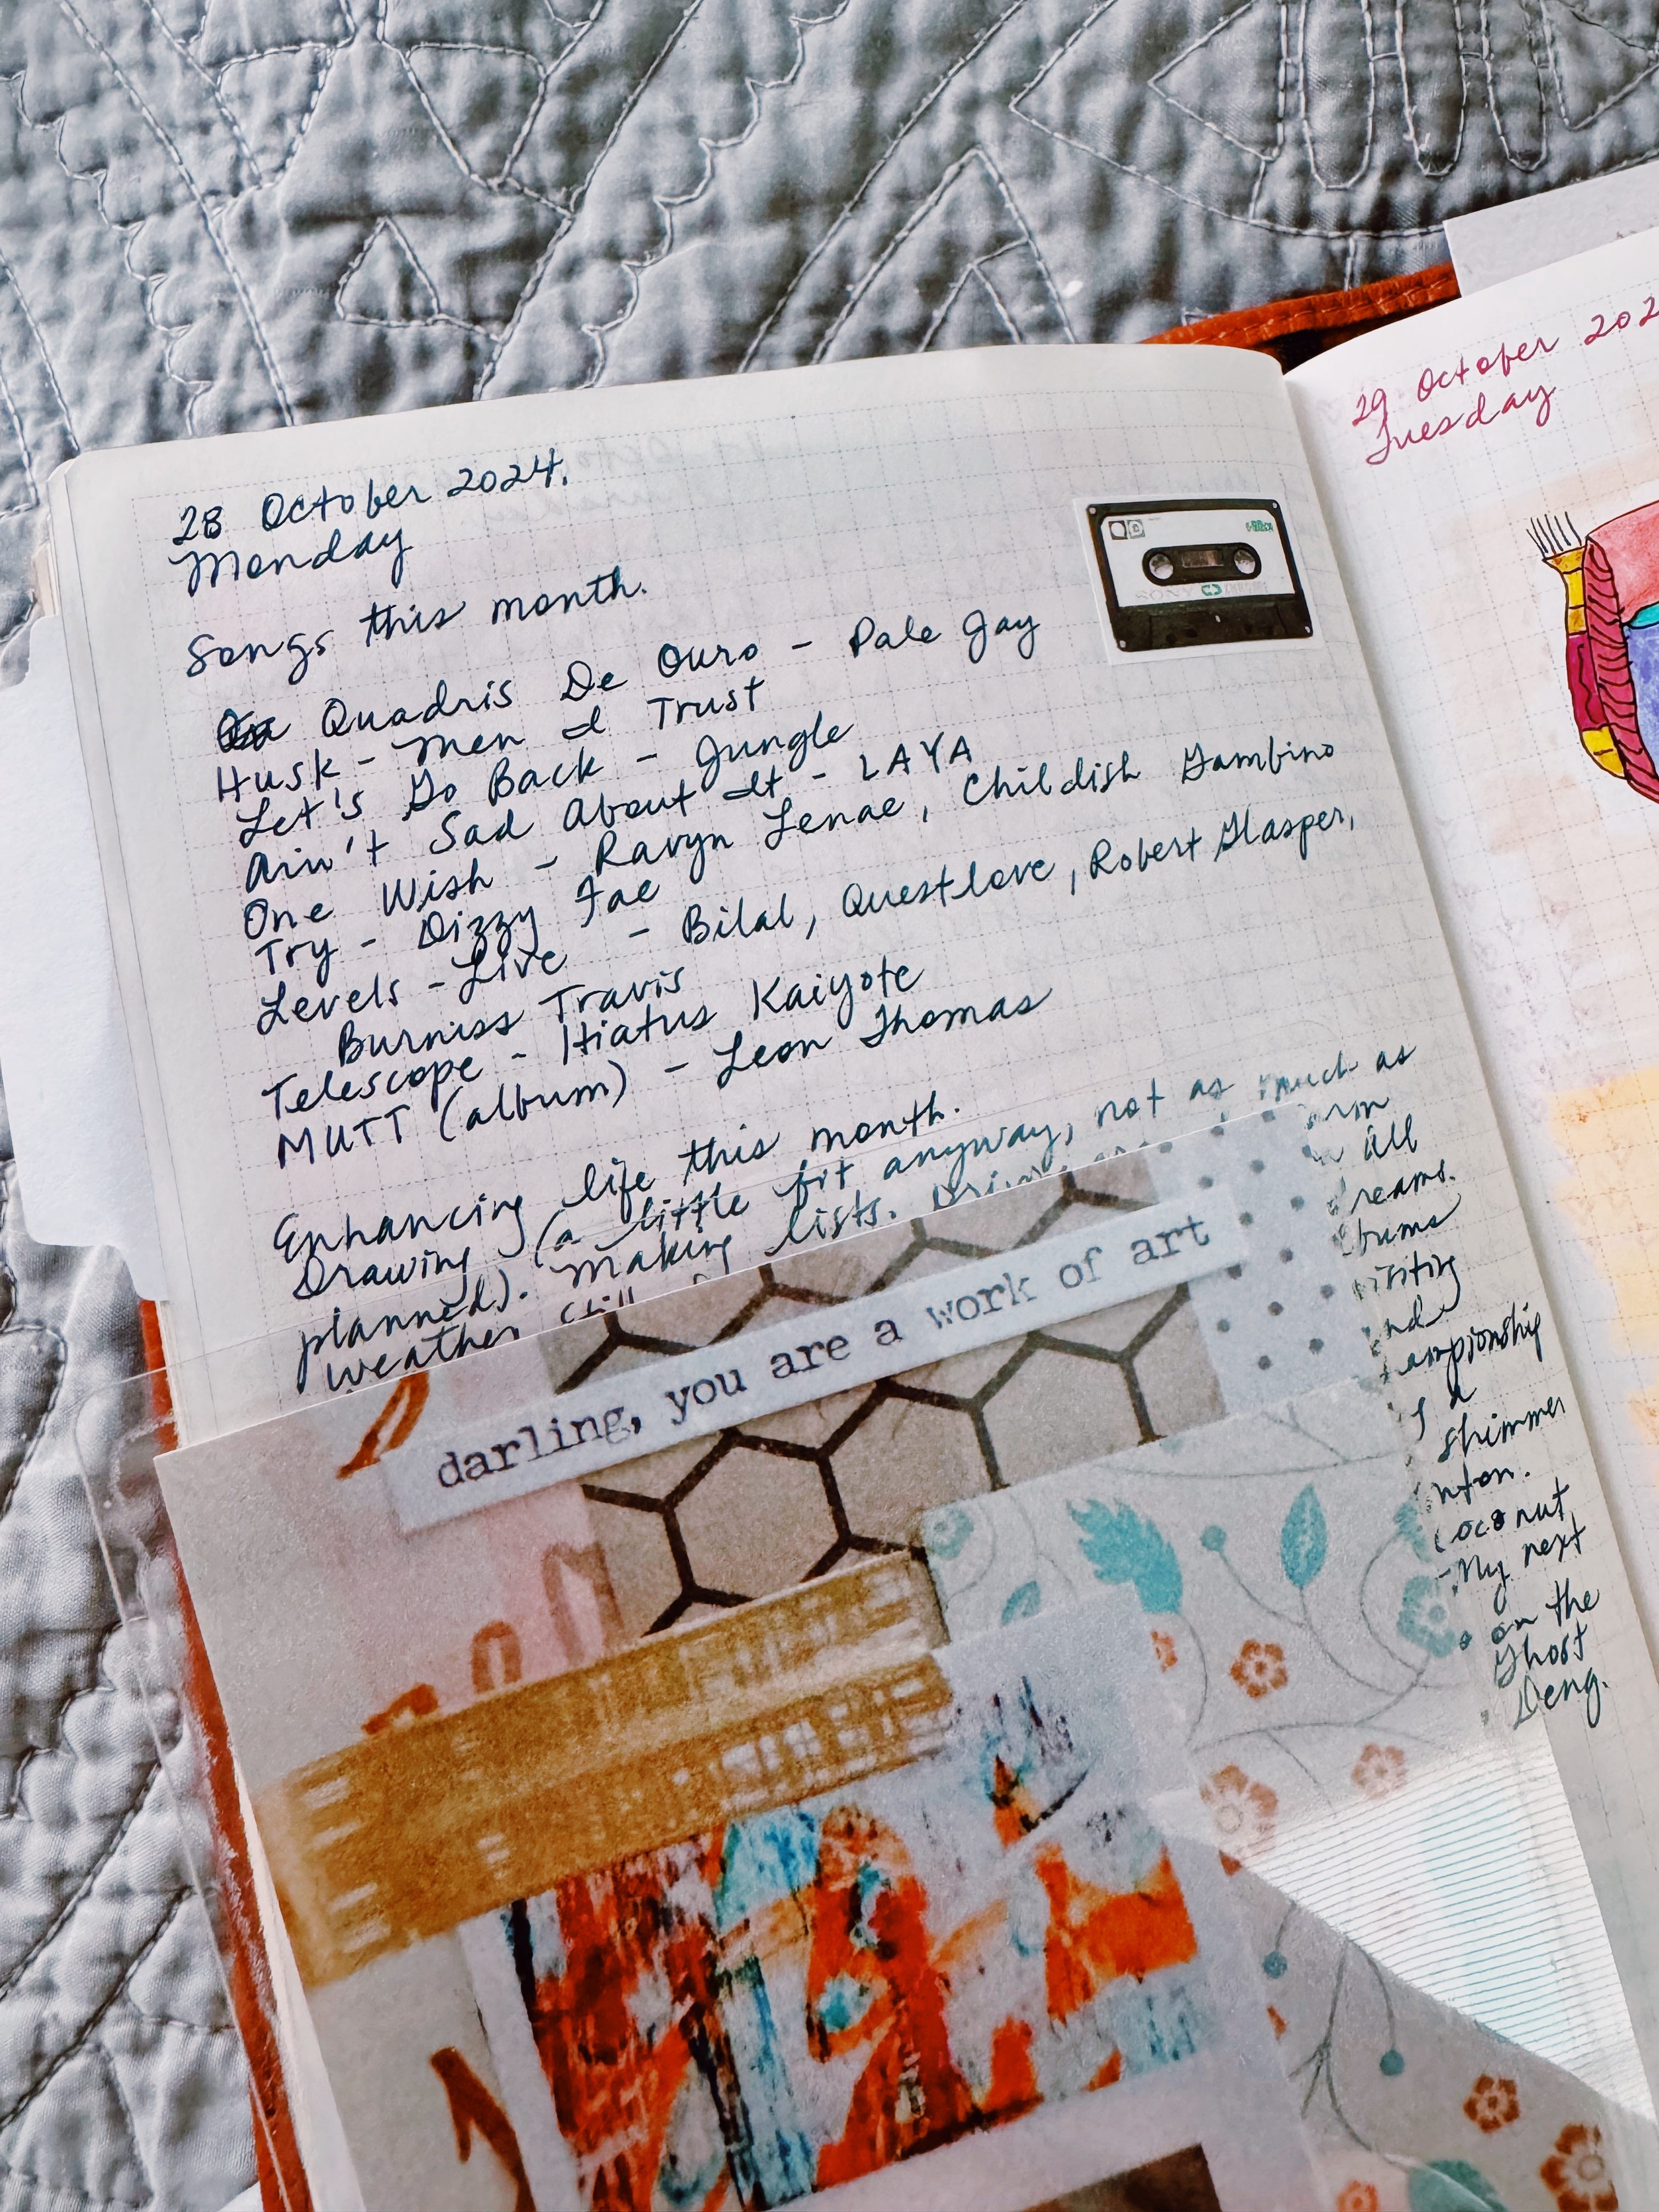 28 October 2024.
Monday
Songs this month.
Quadris De Ouro - Pale Jay
Husk - Men I Trust
Let's Go Back - Jungle
Ain't Sad About It - LAYA
One Wish - Ravyn Lenae, Childish Gambino
Try - Dizzy Fae
Levels - Live - Bilal, Questlove, Robert Glasper,
Burniss Travis
Telescope - Hiatus Kaiyote
MUTT (album) - Leon Thomas
Enhancing life this month.
Drawing (a little bit anyway, not as much as
planned). Making lists.
weather still
All
reams.
bums
visiting
nd
ampionship
a
shimmer
nton.
coconut
My next
on the
Ghost
Deng.
darling, you are a work of art
29 October 202
Tuesday